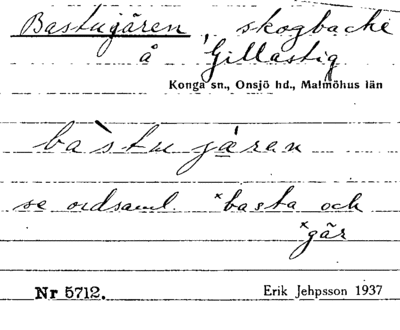 Bastugåren, skogbacke
å Gillastig
Konga sn., Onsjö hd., Malmöhus län
bàstu jåran
se ordsaml. *basta och
*går
Nr 5712. Erik Jehpsson 1937